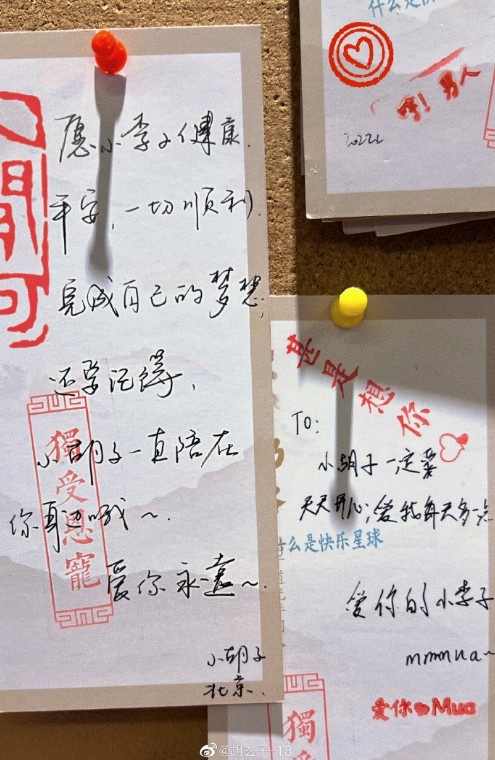 愿小李子健康,
平安,一切顺利,
完成自己的梦想,
还要记得,
小胡子一直陪在
你身边哦~
爱你永远~
小胡子
北京.
獨受恩寵
間
可
什么是快
啊!男人
甚是想你
TO:
小胡子一定要
天天开心,爱我每天多一点
什么是快乐星球
爱你的小李子
mmmua~
爱你 Mua
獨受